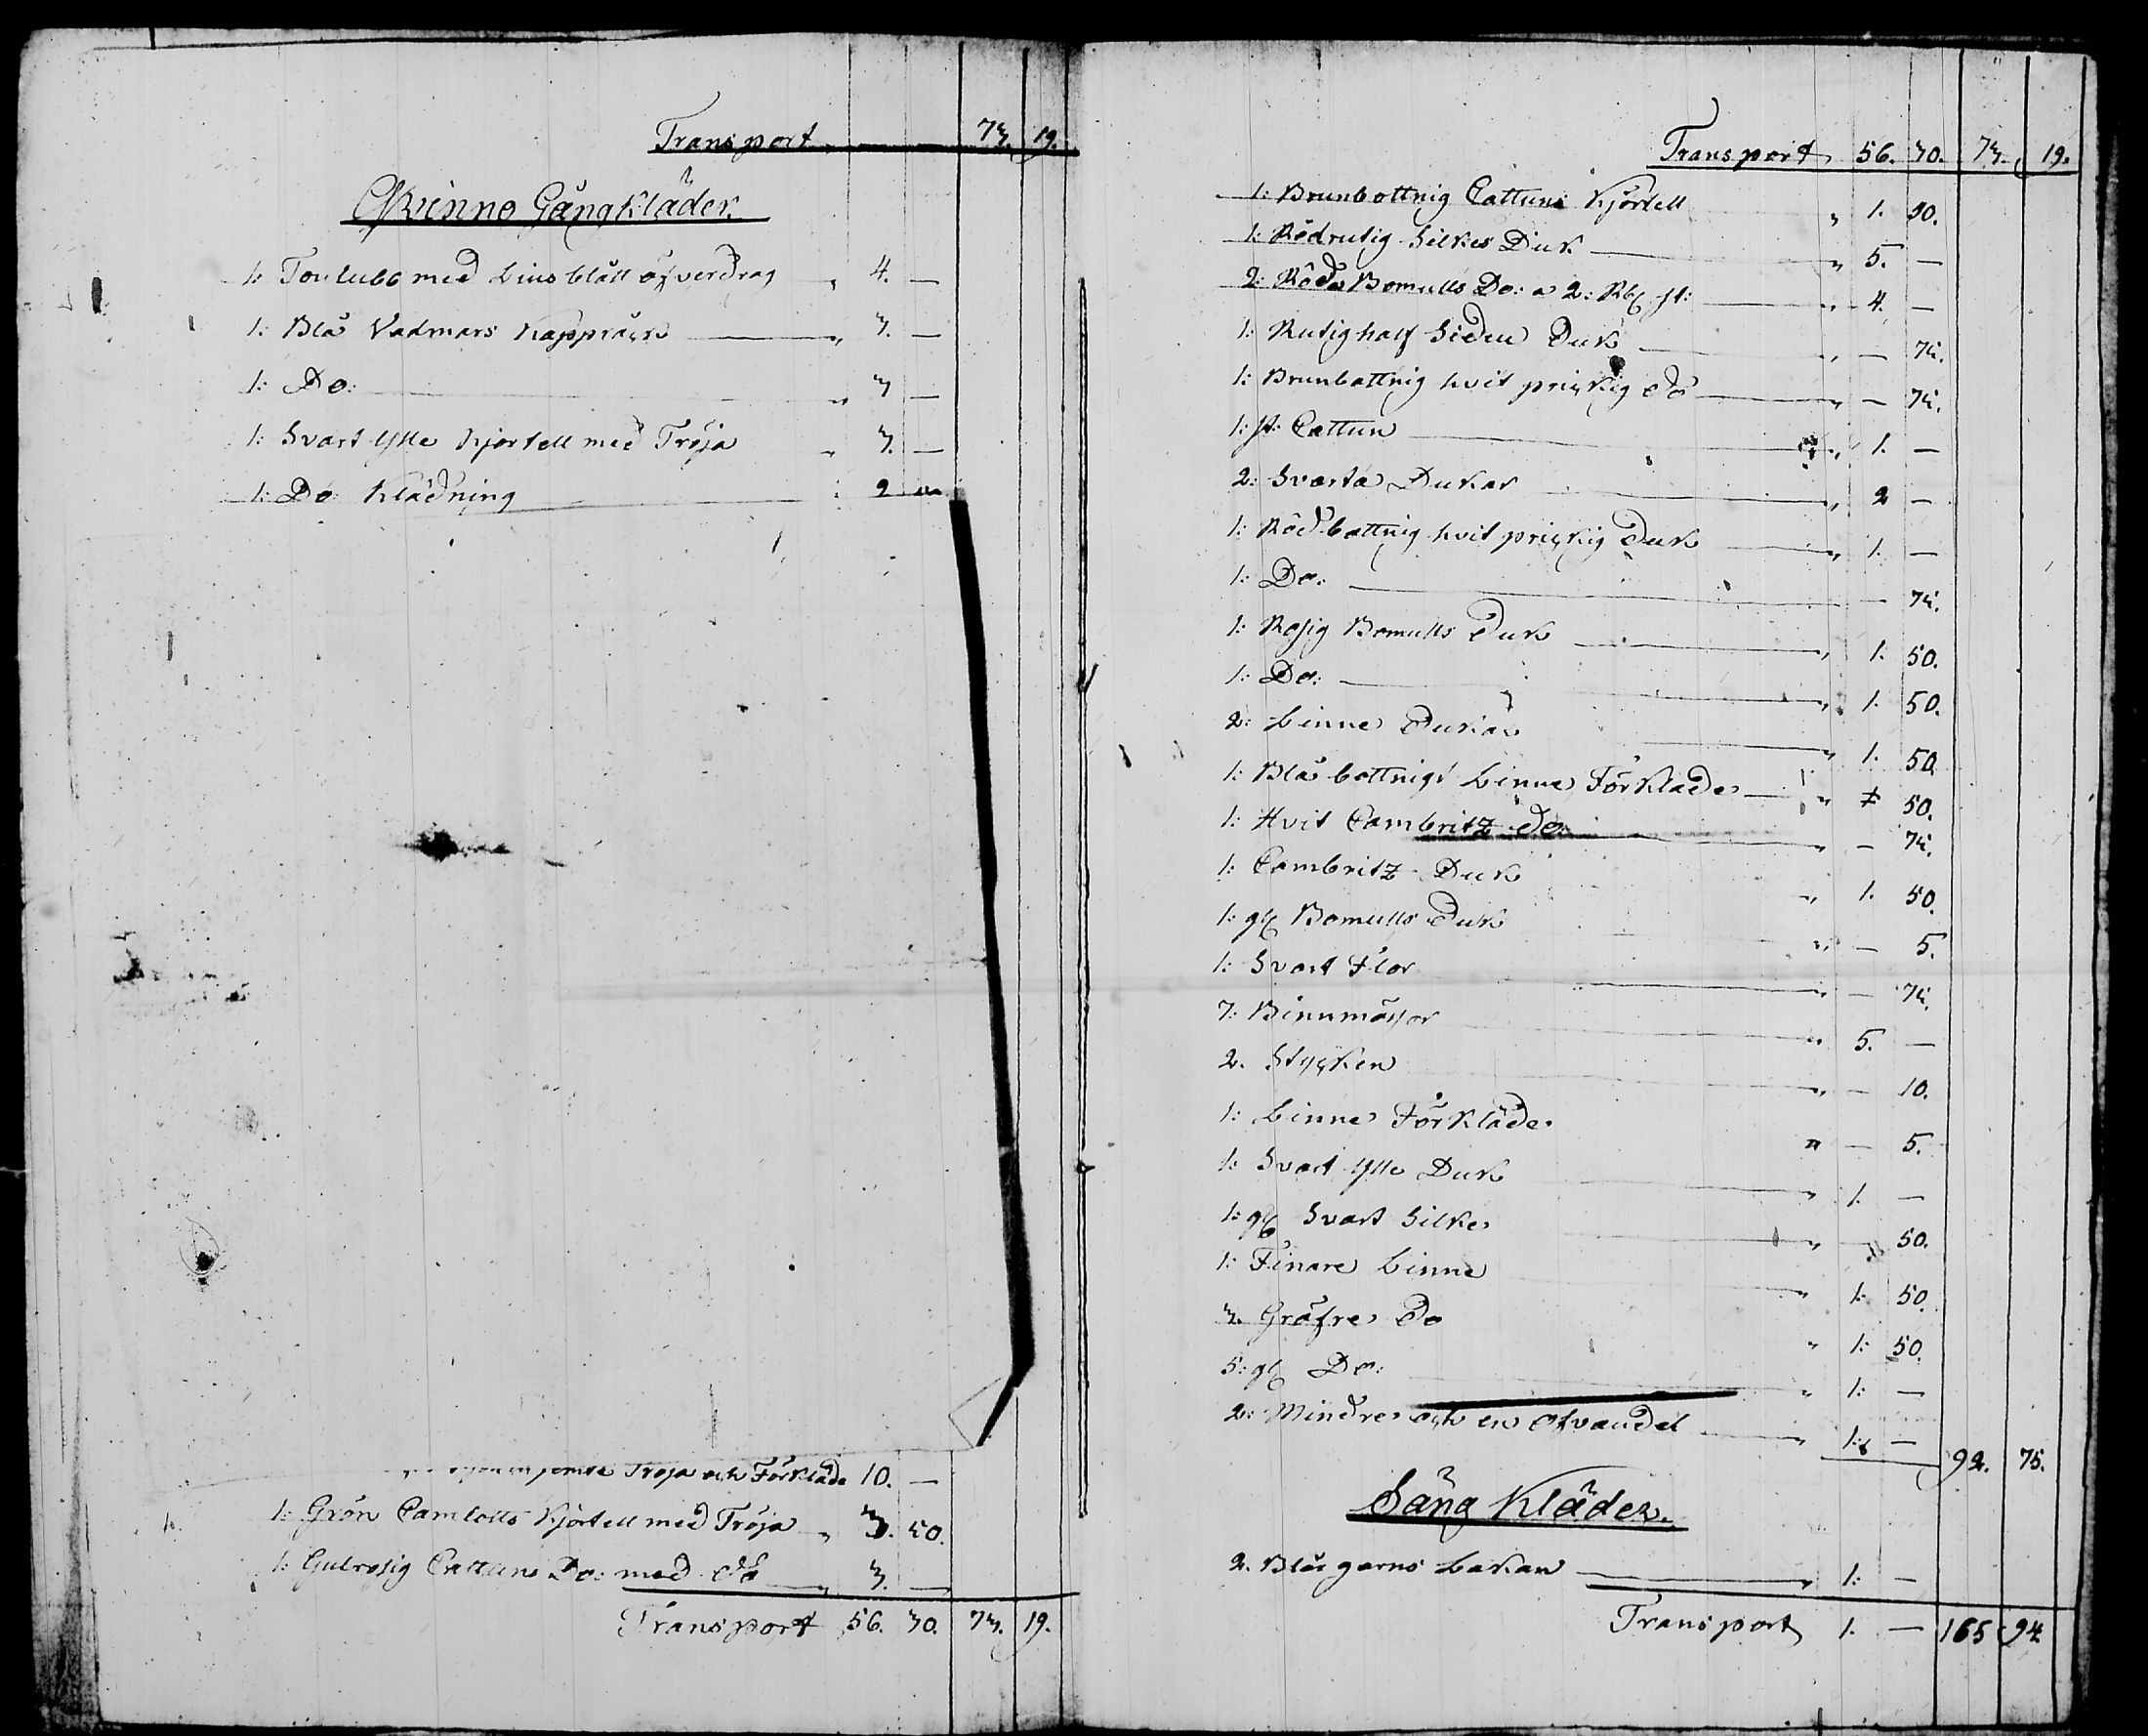 Transport 73. 19.
Qvinno Gångkläder.
1: Toulubb med Liusblått öfverdrag " 4. —
1: Blå Vadmars Kappråck " 3. —
1: Do: " 3 —
1: Svart Ylle Kjortell med Tröja " 3. —
1: Do Klädning 2 —
Tröja och Förkläde 10. —
1: Grön Camlotts Kjortell med Tröja " 3. 50.
1: Gulrosig Cattuns Do: med do " 3. —
Transport 56. 30. 73. 19.
Transport 56. 30. 73. 19.
1: Brunbottnig Cattuns Kjortell " 1. 50.
1: Rödrutig Silkes Duk " 5. —
2: Röda Bomulls Do: a 2: Rd st: " 4. —
1: Rutig half Siden Duk " — 75.
1: Brunbottnig hvit prickig do " — 75.
1: st: Cattun " 1. —
2: Svarta Dukar " 2 —
1: Rödbottnig hvit prickig Duk " 1. —
1: Do: — 75.
1: Rosig Bomulls Duk " 1. 50.
1: Do: " 1. 50.
2: Linne Dukar " 1. 50.
1: Blåbottnigt Linne Förkläde " 50.
1: Hvit Cambritz do " — 75.
1: Cambritz Duk " 1. 50.
1: gl Bomulls Duk " — 5.
1: Svart Flor " — 75.
7: Binnmössor " 5. —
2. Stycken " — 10.
1: Linne Förkläde " — 5.
1: Svart Ylle Duk " 1. —
1: gl Svart Silkes " — 50.
1: Finare Linne " 1: 50.
3. Gröfre Do " 1: 50.
5: gl Do: " 1: —
2: Mindre och en Ofvandel " 1: — 92. 75.
Säng Kläder.
2. Blågarns Lakan " 1: —
Transport 1. — 165 94